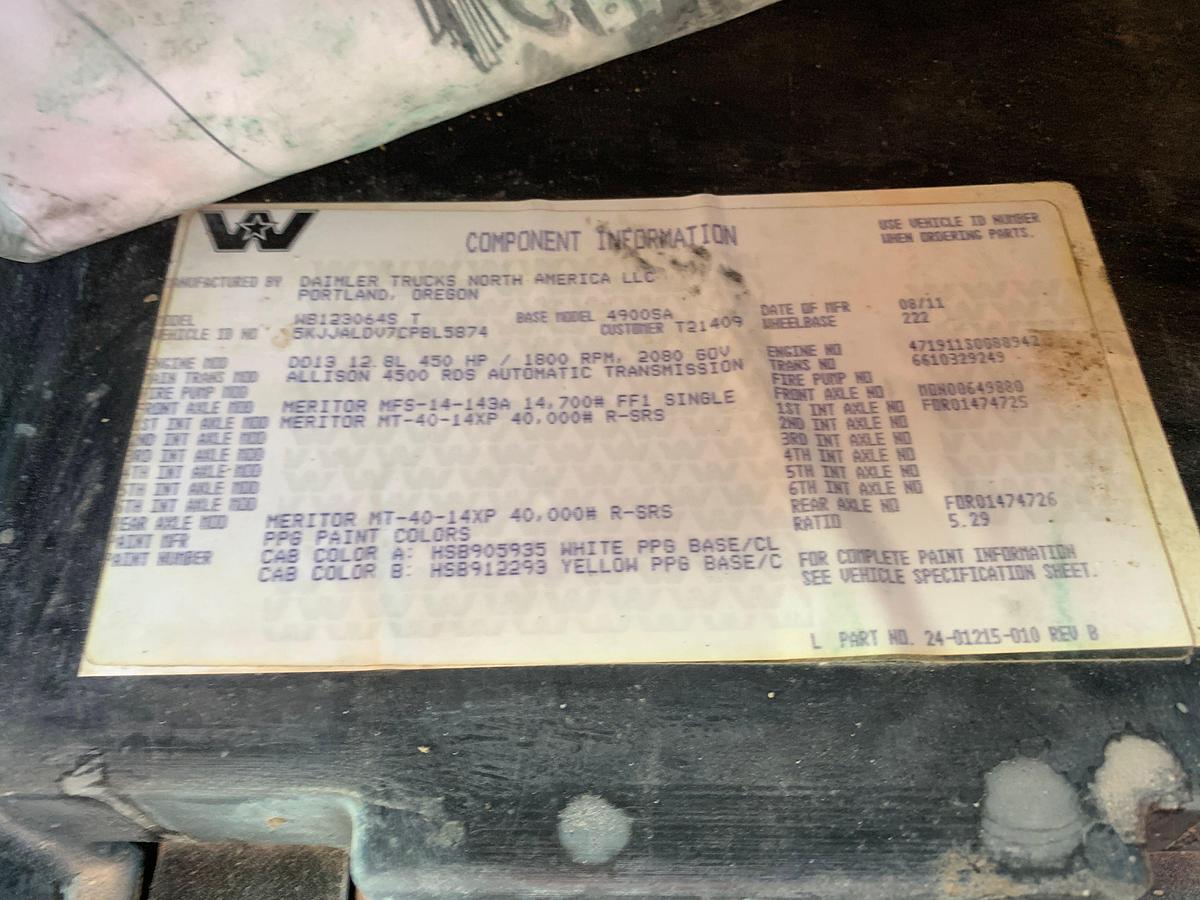 COMPONENT INFORMATION
USE VEHICLE ID NUMBER
WHEN ORDERING PARTS.
MANUFACTURED BY DAIMLER TRUCKS NORTH AMERICA LLC
PORTLAND, OREGON
MODEL WB123064S T BASE MODEL 4900SA DATE OF MFR 08/11
VEHICLE ID NO 5KJJALDV7CPBL5874 CUSTOMER T21409 WHEELBASE 222
ENGINE MOD DD13 12.8L 450 HP / 1800 RPM, 2080 GOV ENGINE NO 471911S0088942
MAIN TRANS MOD ALLISON 4500 RDS AUTOMATIC TRANSMISSION TRANS NO 6610329249
FIRE PUMP MOD FIRE PUMP NO
FRONT AXLE MOD MERITOR MFS-14-143A 14,700# FF1 SINGLE FRONT AXLE NO MON00649880
1ST INT AXLE MOD MERITOR MT-40-14XP 40,000# R-SRS 1ST INT AXLE NO FDR01474725
2ND INT AXLE MOD 2ND INT AXLE NO
3RD INT AXLE MOD 3RD INT AXLE NO
4TH INT AXLE MOD 4TH INT AXLE NO
5TH INT AXLE MOD 5TH INT AXLE NO
6TH INT AXLE MOD 6TH INT AXLE NO
REAR AXLE MOD MERITOR MT-40-14XP 40,000# R-SRS REAR AXLE NO FDR01474726
PAINT MFR PPG PAINT COLORS RATIO 5.29
PAINT NUMBER CAB COLOR A: HSB905935 WHITE PPG BASE/CL
CAB COLOR B: HSB912293 YELLOW PPG BASE/C
FOR COMPLETE PAINT INFORMATION
SEE VEHICLE SPECIFICATION SHEET.
L PART NO. 24-01215-010 REV B